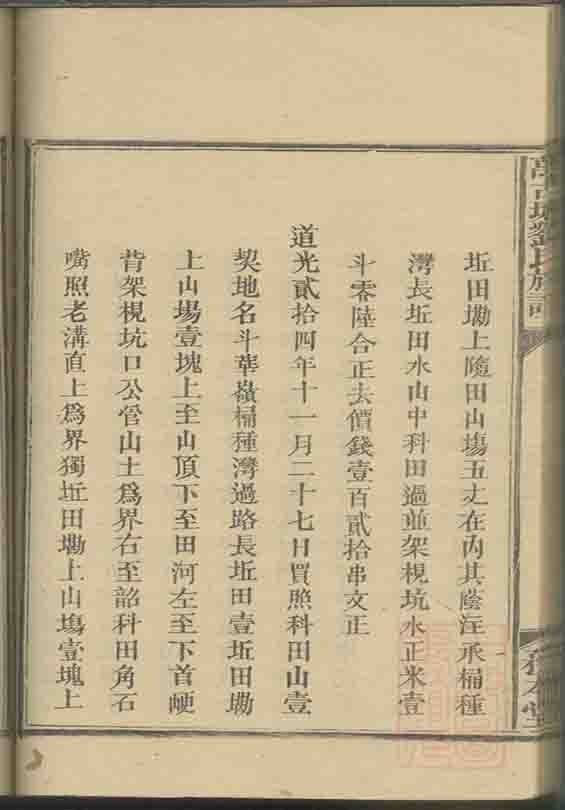 坵田墈上隨田山塲五乂在內其蔭注承桶種
灣長坵田水山中科田過並架梘坑水正米壹
斗零陸合正去價錢壹百貳拾串文正
道光貳拾四年十一月二十七日買照科田山壹
契地名斗華嶺桶種灣過路長坵田壹坵田墈
上山塲壹塊上至山頂下至田河左至下首𡸁
背架梘坑口公管山土爲界右至韶科田角石
嘴照老溝直上爲界獨坵田墈上山塲壹塊上
劉氏族